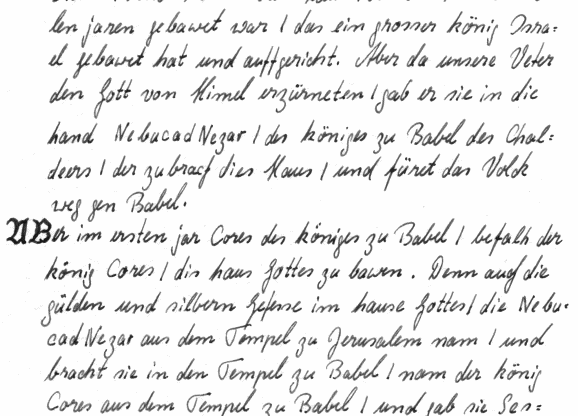 len jaren gebawet war / das ein grosser könig Isra=
el gebawet hat und auffgericht. Aber da unsere Veter
den Gott von Himel erzürneten / gab er sie in die
hand NebucadNezar / des königes zu Babel des Chal=
deers / der zubrach dies Haus / und füret das Volck
weg gen Babel.
ABer im ersten jar Cores des königes zu Babel / befalh der
könig Cores / dis haus Gottes zu bawen. Denn auch die
gülden und silbern Gefesse im hause Gottes / die Nebu=
cadNezar aus dem Tempel zu Jerusalem nam / und
bracht sie in den Tempel zu Babel / nam der könig
Cores aus dem Tempel zu Babel / und gab sie Sas=